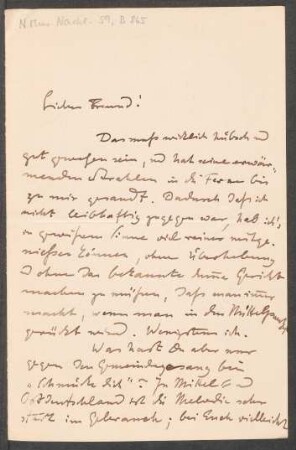 N. Mus. Nachl. 59, B 865
Lieber Freund!
Das muß wirklich hübsch u
gut gewesen sein, und hat seine erwär-
menden Strahlen in die Ferne bis
zu mir gesandt. Dadurch daß ich
nicht leibhaftig zugegen war, hab ich's,
in gewissem Sinne viel reiner mitge-
niessen können, ohne Überhebung
u ohne das bekannte dumme Gesicht
machen zu müßen, daß man immer
macht, wenn man in den Mittelpunkt
gerückt wird. Wenigstens ich.
Was hast Du aber nur
gegen den Gemeindegesang bei
„Schmücke dich" – In Mittel u
Ostdeutschland ist die Melodie sehr
stark im Gebrauch; bei Euch vielleicht